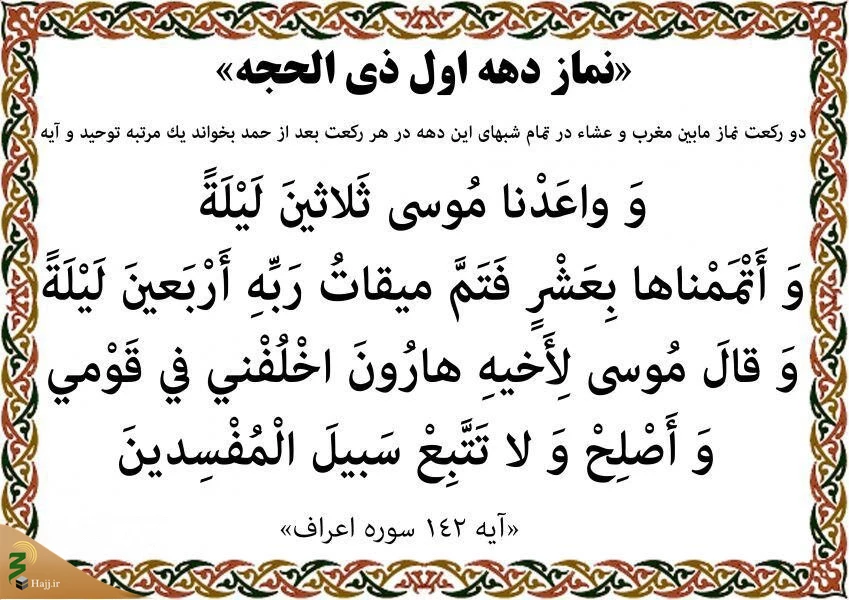 «نماز دهه اول ذی الحجه»
دو رکعت نماز مابین مغرب و عشاء در تمام شبهای این دهه در هر رکعت بعد از حمد بخواند یك مرتبه توحید و آیه
وَ واعَدْنا مُوسی ثَلاثینَ لَیْلَةً
وَ أَتْمَمْناها بِعَشْرٍ فَتَمَّ میقاتُ رَبِّهِ أَرْبَعینَ لَیْلَةً
وَ قالَ مُوسی لِأَخیهِ هارُونَ اخْلُفْني في قَوْمي
وَ أَصْلِحْ وَ لا تَتَّبِعْ سَبیلَ الْمُفْسِدینَ
«آیه ١٤٢ سوره اعراف»
Hajj.ir